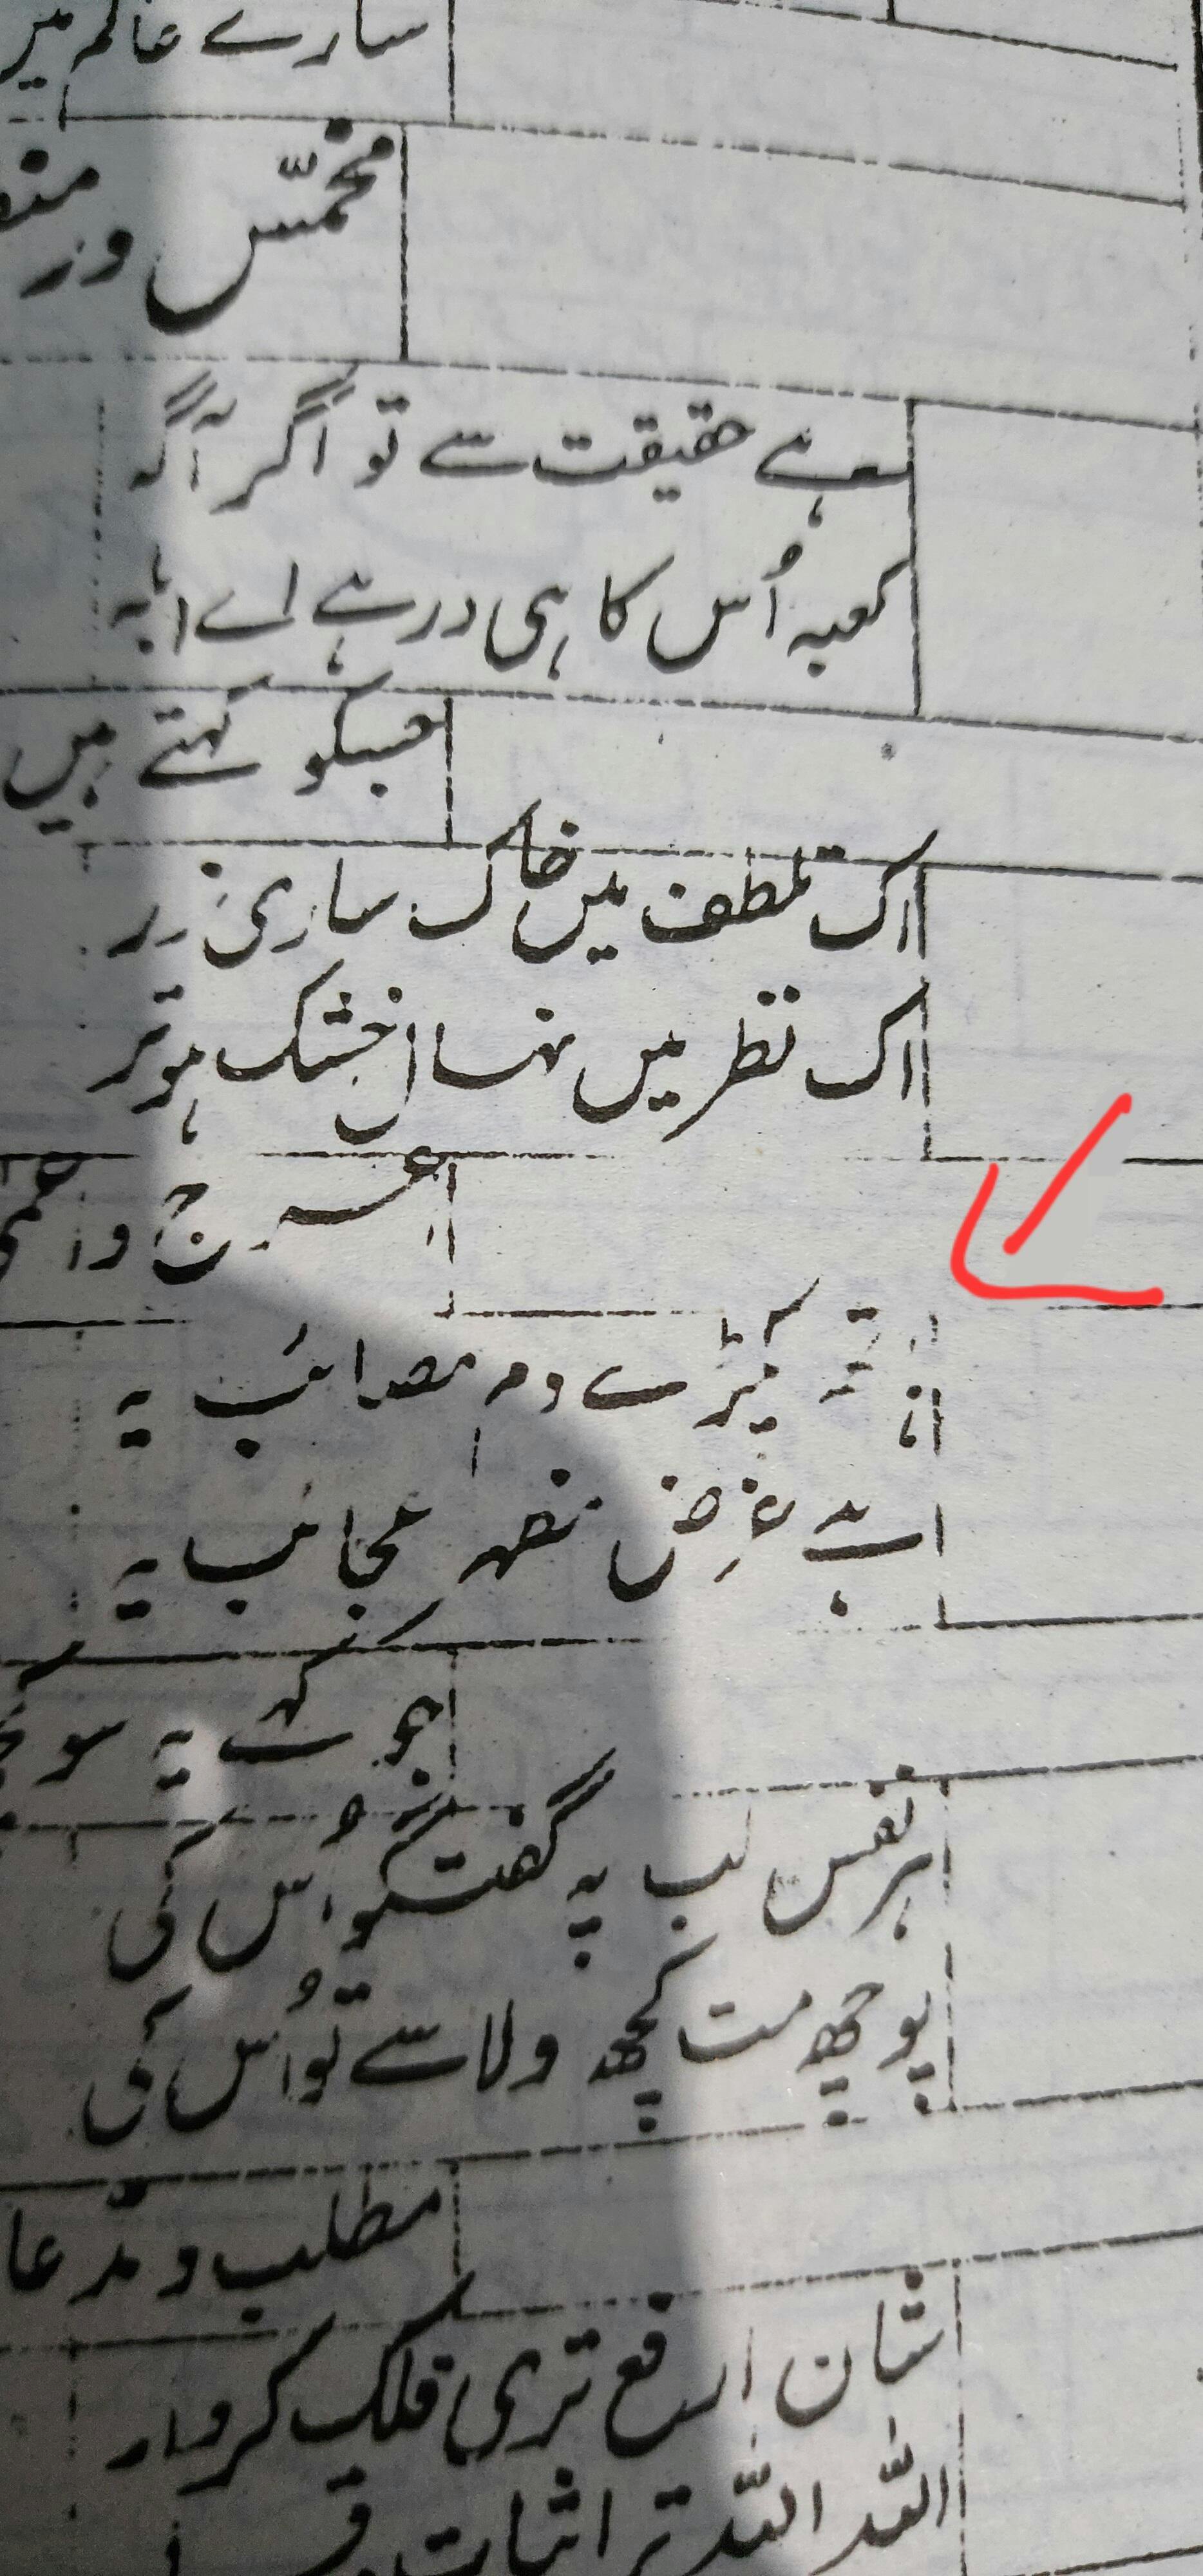 سارے عالم میں
مخمّس در منق
ہے حقیقت سے تو اگر آگہ
کعبہ اُس کا ہی در ہے اے ابلہ
جسکو کہتے ہیں
اک تلطف میں خاک ساری زر
اک نظر میں نہال خشک ہو تر
و
ہاتھ پکڑے دم مصائب یہ
ہے غرض مظہر عجائب یہ
جو کہ یہ سو
ہر نفس لب پہ گفتگو اُس کی
پوچھ مت کچھ ولا سے تو اُس کی
مطلب و مدّعا
شان ارفع تری فلک کردار
اللّٰہ اللّٰہ ترا ثبات